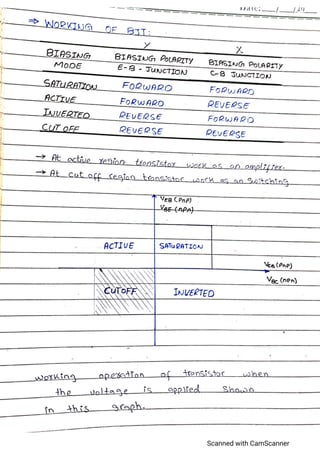 DATE: __/__/20__
⇒ WORKING OF BJT:
BIASING MODE | BIASING POLARITY E-B - JUNCTION | BIASING POLARITY C-B JUNCTION
SATURATION FORWARD FORWARD
ACTIVE FORWARD REVERSE
INVERTED REVERSE FORWARD
CUT OFF REVERSE REVERSE
→ At active region transistor work as an amplifier.
→ At cut off region transistor work as an switching
VEB (PnP)
VBE (nPn)
ACTIVE SATURATION
VCB (PnP)
VBC (nPn)
CUTOFF INVERTED
working operation of transistor when
the voltage is applied shown
in this graph.
Scanned with CamScanner